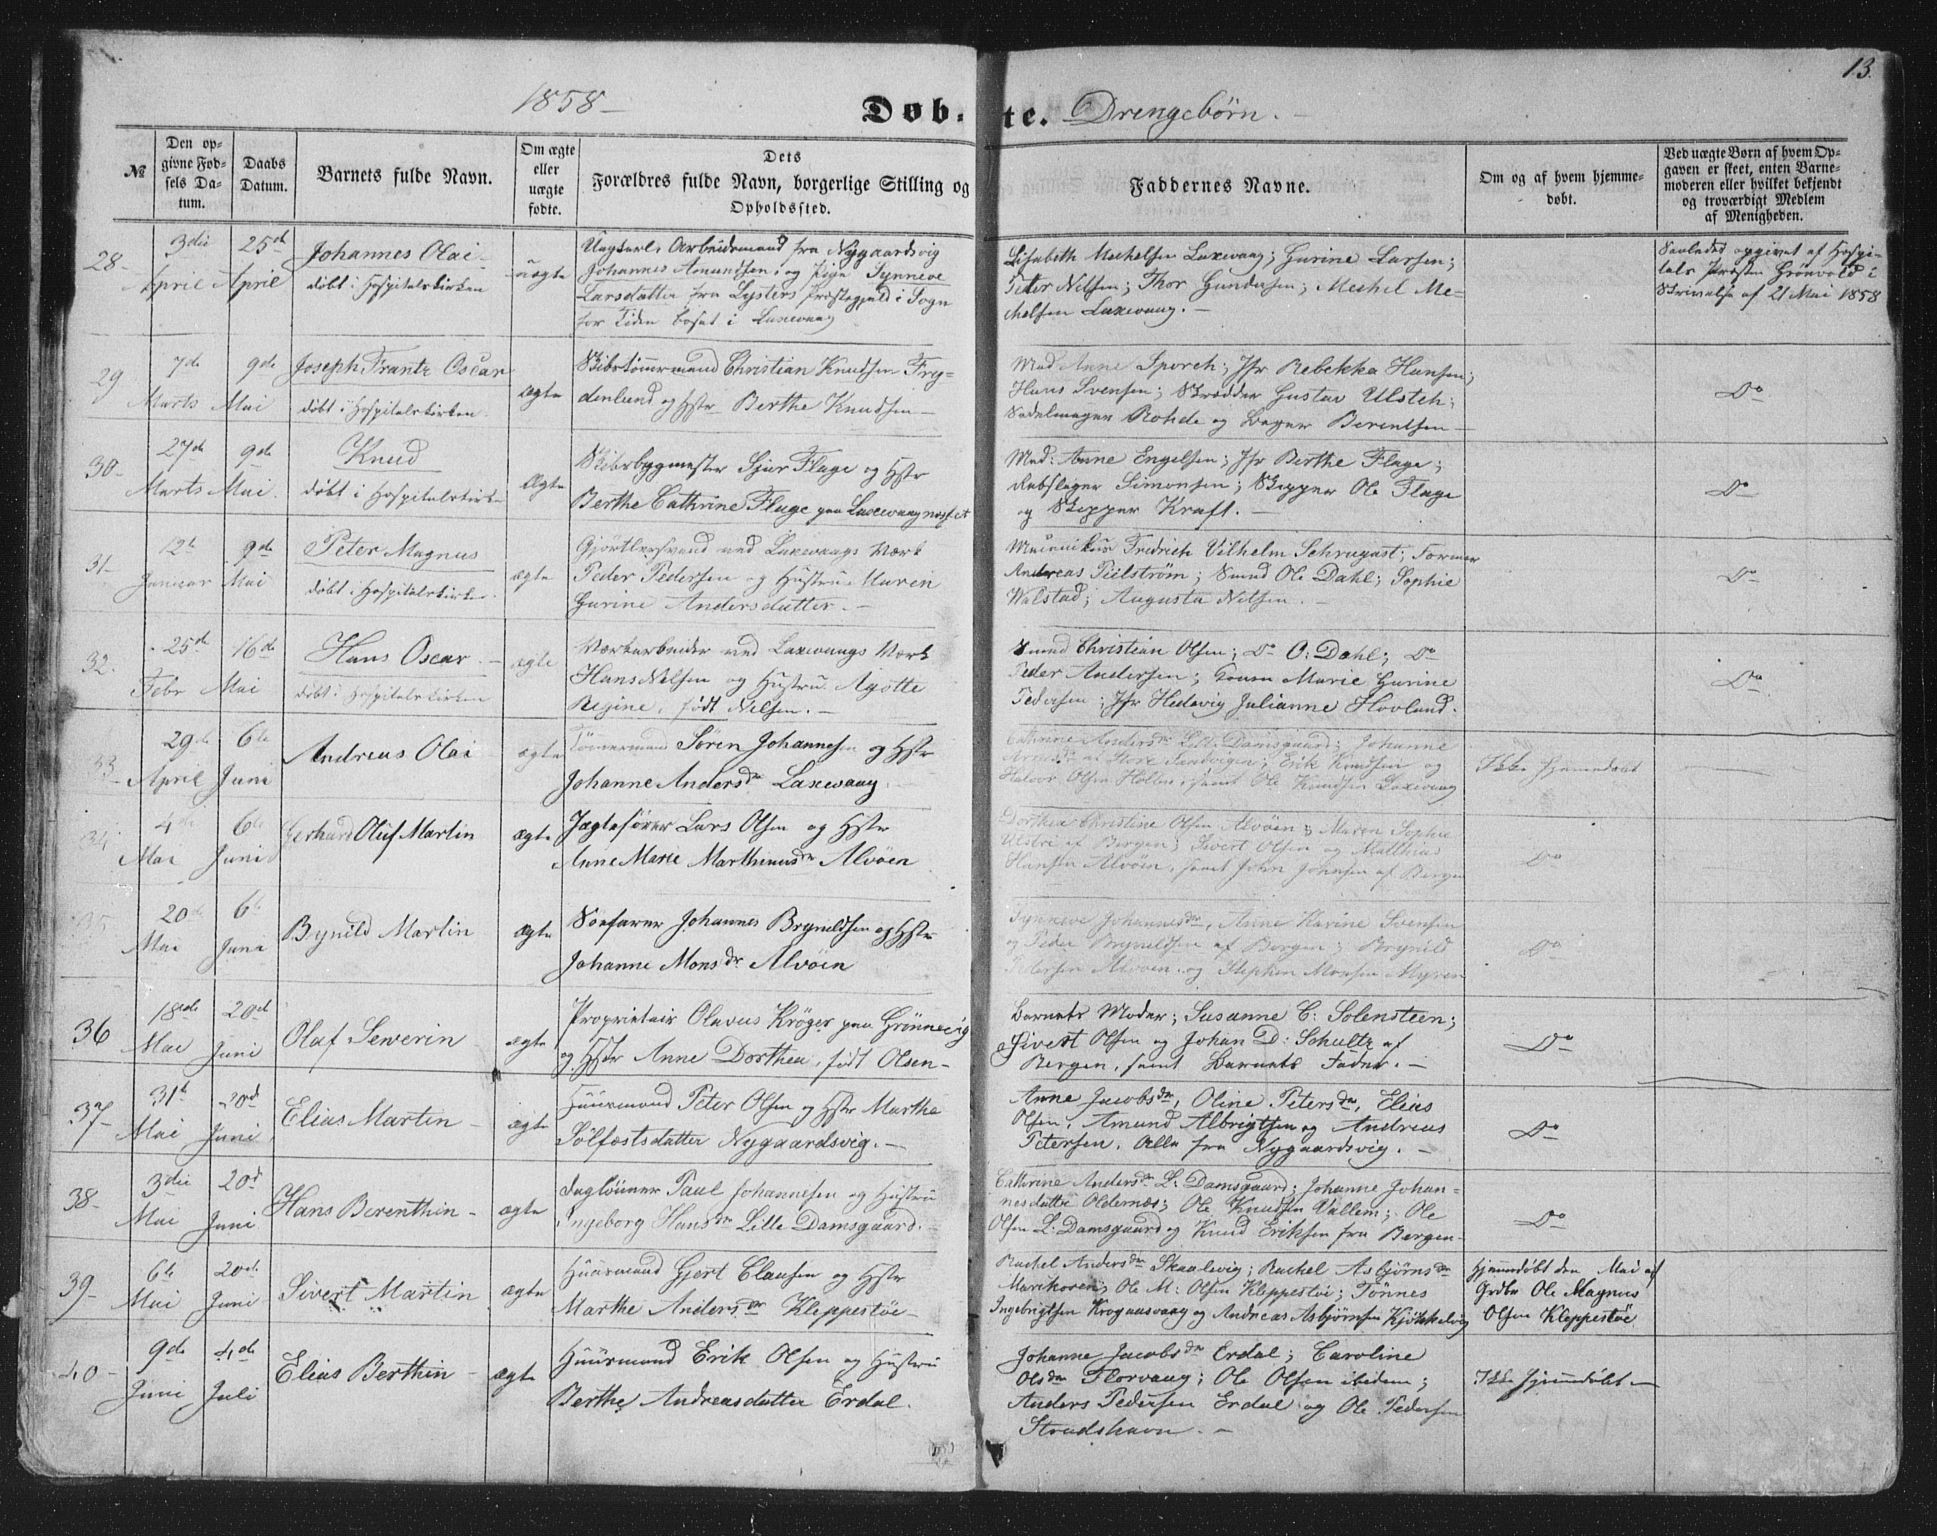 13.
1858 –
Døb-te. Drengebørn. –
№
Den op-
givne Fød-
sels Da-
tum.
Daabs
Datum.
Barnets fulde Navn.
Om ægte
eller
uægte
fødte.
Dets
Forældres fulde Navn, borgerlige Stilling og
Opholdssted.
Faddernes Navne.
Om og af hvem hjemme-
døbt.
Ved uægte Børn af hvem Op-
gaven er skeet, enten Barne-
moderen eller hvilket bekjendt
og troværdigt Medlem
af Menigheden.
28 –
3die
April
25de
April
Johannes Olai –
døbt i Hospitalskirken
uægte
Ungkarl, Arbeidsmand fra Nygaardsvig
Johannes Amundsen; og Pige Synneve
Larsdatter fra Lysters Præstegjeld i Sogn
for Tiden bosat i Laxevaag
Lisabeth Mechelsen Laxevaag; Gurine Larsen;
Peter Nilsen; Thor Gundersen; Mechel Me-
chelsen Laxevaag. –
Saaledes opgivet af Hospi-
tals Præsten Grönvold i
Skrivelse af 21 Mai 1858
29
7de
Marts
9de
Mai
Joseph Frantz Oscar
døbt i Hospitalskirken
ægte
Skibstømmermand Christian Knudsen Fry-
denlund og Hstr Berthe Knudsen –
Mad Anne Sporch; Jfr Rebekka Hansen;
Hans Svensen; Skrædder Gustav Ulsteh;
Sadelmager Rohde og Bager Berentsen –
Do
30 –
27de
Marts
9de
Mai.
Knud
døbt i Hospitalskirken
Ægte
Skibsbygmester Sjur Flage og Hstr
Berthe Cathrine Flage paa Laxevaagnæsset
Mad: Anne Engelsen; Jfr Berthe Flage;
Rebslager Simonsen; Skipper Ole Flage
og Skipper Kraft. –
Do
31
12te
Januar
9de
Mai
Peter Magnus
døbt i Hospitalskirken
ægte
Gjørtlersvend ved Laxevaags Værk
Peder Pedersen og Hustru Maren
Gurine Andersdatter. –
Mechanikus Fredrich Vilhelm Schrugast; Former
Andreas Piilstrøm; Smed Ole Dahl; Sophie
Walstad; Augusta Nilsen. –
Do
32
25de
Febr
16de
Mai
Hans Oscar. –
døbt i Hospitalskirken
ægte
Værkarbeider ved Laxevaags Værk
Hans Nilsen og Hustru Agotte
Regine, født Nelsen. –
Smed Christian Olsen; Do O: Dahl; Do
Peder Andersen; Konen Marie Gurine
Pedersen; Jfr Hedevig Julianne Hovland.
Do
33 –
29de
April
6te
Juni
Andreas Olai
ægte
Tømermand Søren Johannesen og Hstr
Johanne Andersdr Laxevaag.
Cathrine Andersdr Lille Damsgaard; Johanne
Arensdr af Store Sandvigen; Erik Knudsen og
Halvor Olsen Hollen, samt Ole Knudsen Laxevaag
Ikke hjemmedøbt
34
4de
Mai
6te
Juni
Gerhard Oluf Martin
ægte
Jagtefører Lars Olsen og Hstr
Anne Marie Marthinusdr Alvøen
Dorthea Christine Olsen Alvøen; Maren Sophie
Ulstri af Bergen; Sivert Olsen og Matthias
Hansen Alvøen, samt John Johnsen af Bergen
Do
35
20de
Mai
6te
Juni
Brynild Martin
ægte
Søefarer Johannes Brynildsen og Hstr
Johanne Monsdr Alvøen
Synneve Johannesdr, Anne Karine Svensen
og Peder Brynildsen af Bergen; Brynild
Pedersen Alvøen. og Stephen Monsen Myren
Do
36
18de
Mai
20de
Juni
Olaf Severin
ægte
Proprietair Olavus Krøger paa Grønnevig
og Hstr Anne Dorthea, født Olsen –
Barnets Moder; Susanne C: Solensteen;
Sivert Olsen og Johan D: Schultz af
Bergen, samt Barnets Fader. –
Do
37 –
31te
Mai
20de
Juni
Elias Martin –
ægte
Huusmand Peter Olsen og Hstr Marthe
Sølfæstsdatter Nygaardsvig. –
Anne Jacobsdr, Oline Petersdr, Elias
Olsen, Amund Albrigtsen og Andreas
Petersen. Alle fra Nygaardsvig. –
Do
38 –
3die
Mai
20de
Juni
Hans Berenthin –
ægte
Dagløiner Paul Johannesen og Hustru
Ingeborg Hansdr Lille Damsgaard.
Cathrine Andersdr L: Damsgaard; Johanne Johan-
nesdatter Oldernæs; Ole Knudsen Vallem; Ole
Olsen L: Damsgaard og Knud Eriksen fra Bergen –
Do
39 –
6te
Mai
20de
Juni
Sivert Martin
ægte
Huusmand Gjert Clausen og Hstr
Marthe Andersdr Kleppestøe –
Rachel Andersdr Skaalevig; Rachel Asbjørnsdr
Marikoven; Ole M: Olsen Kleppestøe; Tønnes
Ingebrigtsen Krogaasvaag og Andreas Asbjørnsen Kjøkkelvig
hjemmedøbt den Mai af
Grdbr Ole Magnus
Olsen Kleppestøe
40 –
9de
Juni
4de
Juli
Elias Berthin –
ægte
Huusmand Erik Olsen og Hustru
Berthe Andreasdatter Erdal.
Johanne Jacobsdr Erdal; Caroline
Olsdr Florvaag; Ole Olsen ibidem;
Anders Pedersen Erdal og Ole Pedersen
Strudshavn. –
Ikke hjemmedøbt –